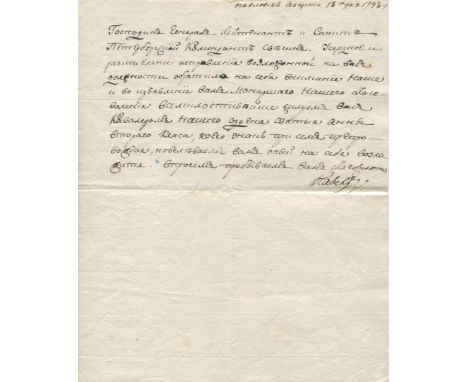 павловск Августа 13го дня 1798г
Господинъ Генералъ Лейтенантъ и Санктъ
Петербургской Комендантъ Усердное и
рачительное исправление возложенной на васъ
должности обратило на себя внимание Наше
и во изъявление вамъ Монаршаго Нашего благо
воления Всемилостивейше васъ
Кавалеромъ Нашего ордена святыя анны
втораго Класа, коего знакъ при семъ
повелеваемъ вамъ на себя возло
жить. впрочемъ пребываемъ вамъ благосклонны
Павелъ